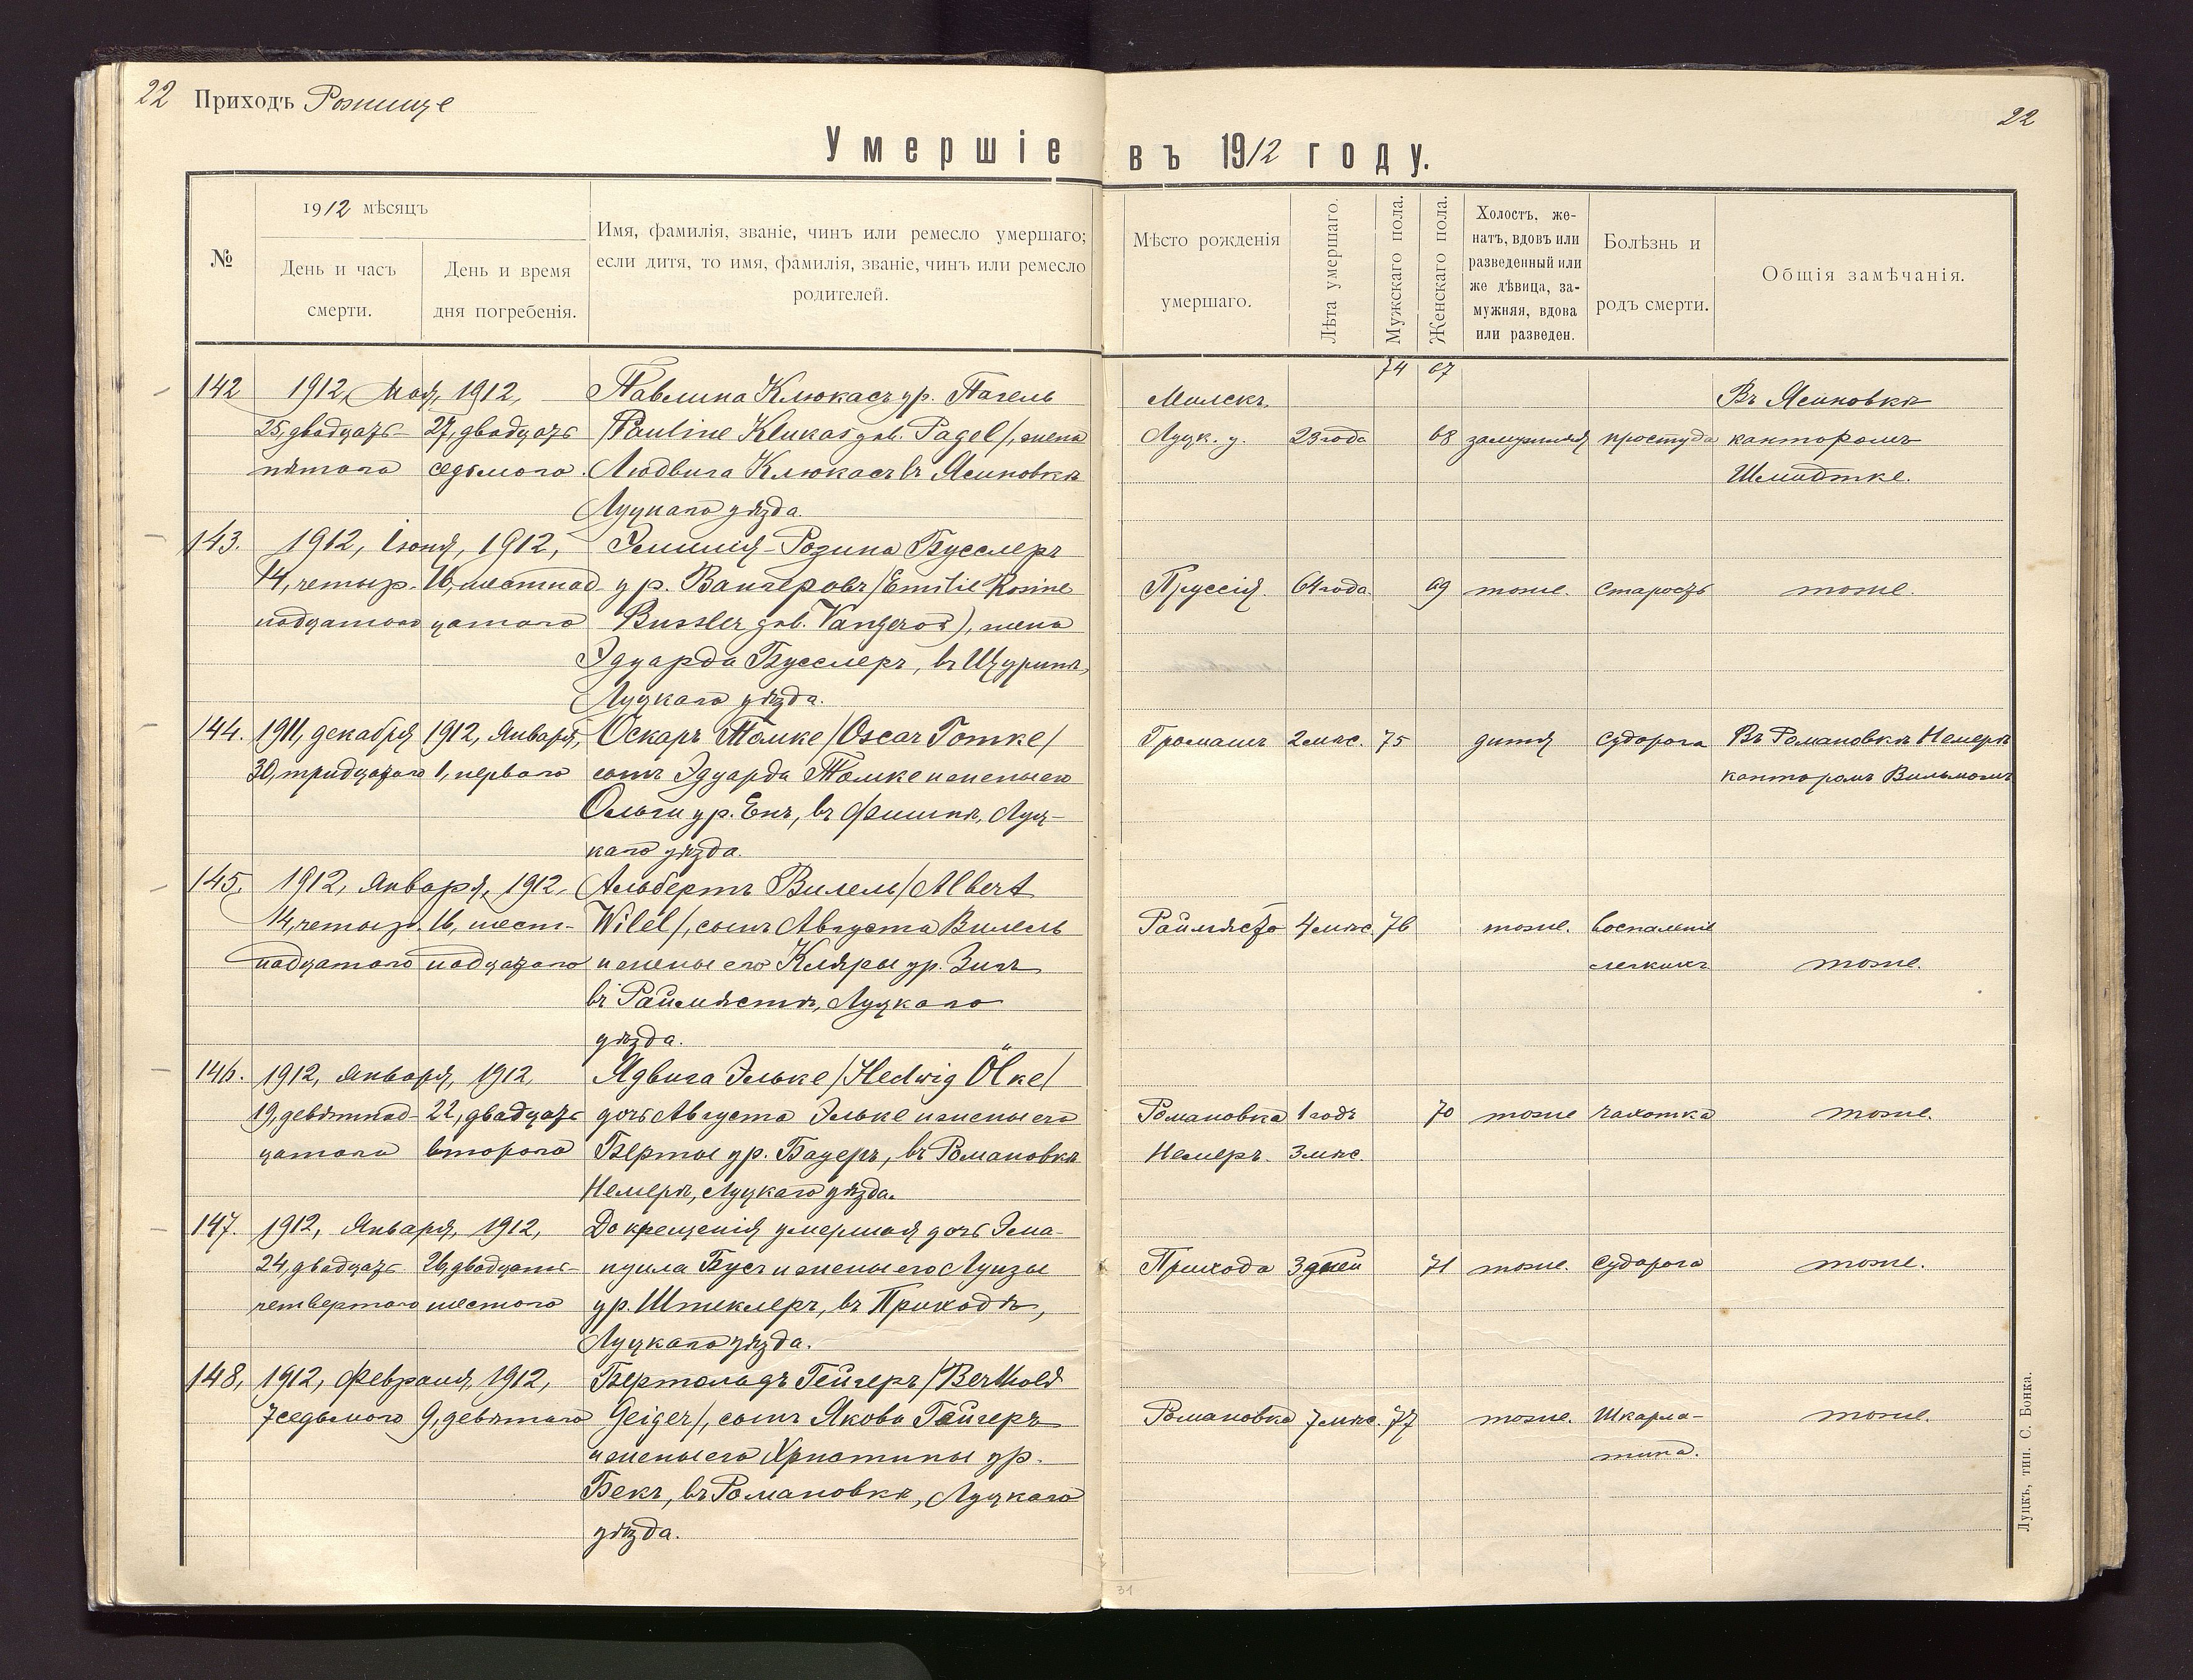 22 Приходъ Рожище
22
Умершіе въ 1912 году.
№
1912 мѣсяцъ
День и часъ смерти.
День и время дня погребенія.
Имя, фамилія, званіе, чинъ или ремесло умершаго;
если дитя, то имя, фамилія, званіе, чинъ или ремесло
родителей.
Мѣсто рожденія
умершаго.
Лѣта умершаго.
Мужскаго пола.
Женскаго пола.
Холостъ, же-
натъ, вдовъ или
разведенный или
же дѣвица, за-
мужняя, вдова
или разведен.
Болѣзнь и
родъ смерти.
Общія замѣчанія.
74 67
142 1912, Мая, 1912, Павлина Клюкасъ ур. Пагель Милскъ, Въ Ясиновкѣ
25, двадцать 27, двадцать /Pauline Klukas geb. Pagel/, жена Луцк. у. 23 года 68 замужняя простуда канторомъ
пятаго седьмого Людвига Клюкасъ въ Ясиновкѣ Шмидтке.
Луцкаго уѣзда.
143. 1912, Іюня, 1912, Эмилія-Розина Бусслеръ
14, четыр- 16, шестнад ур. Вангеровъ /Emilie Rosine Пруссія. 64 года 69 тоже. старость тоже.
надцатого цатого Bussler geb. Vangerow), жена
Эдуарда Бусслеръ, въ Щуринѣ,
Луцкаго уѣзда.
144. 1911, декабря 1912, Января, Оскаръ Томке /Oscar Tomke/ Громашъ 2 мѣс. 75 дитя судорога Въ Романовкѣ Немеръ
30, тридцатого 1, первого сынъ Эдуарда Томке и жены его канторомъ
Ольги ур. Енъ, въ Луц-
каго уѣзда.
145. 1912, Января, 1912, Альбертъ Вилель /Albert
14, четыр 16, шест- Wilel/, сынъ Августа Вилель Раймѣсто 4 мѣс. 76 тоже. воспаленіе
надцатого надцатого и жены его Кляры ур. Зигъ легкихъ тоже.
въ Раймѣстѣ, Луцкаго
уѣзда.
146. 1912, Января, 1912 Ядвига Эльке /Hedwig Ölke/
19, девятнад- 22, двадцать дочь Августа Эльке и жены его Романовка 1 годъ 70 тоже чахотка тоже.
цатого второго Берты ур. Бауеръ, въ Романовкѣ Немеръ. 3 мѣс.
Немеръ, Луцкаго уѣзда.
147. 1912, Января, 1912, До крещенія умершая дочь Эма-
24, двадцать 26, двадцать нуила Бусъ и жены его Луизы Прихода 3 дней 71 тоже. судорога тоже.
четвертого шестого ур. Штеклеръ, въ Приходѣ,
Луцкаго уѣзда.
148, 1912, Февраля, 1912, Бертольдъ Гейгеръ /Berthold
7 седьмого 9, девятого Geiger/, сынъ Якова Гейгеръ Романовка 7 мѣс. 77 тоже. Шкарла- тоже.
и жены его Христины ур. тина.
Бекъ, въ Романовкѣ, Луцкаго
уѣзда.
Луцкъ, тип. С. Бонка.
31